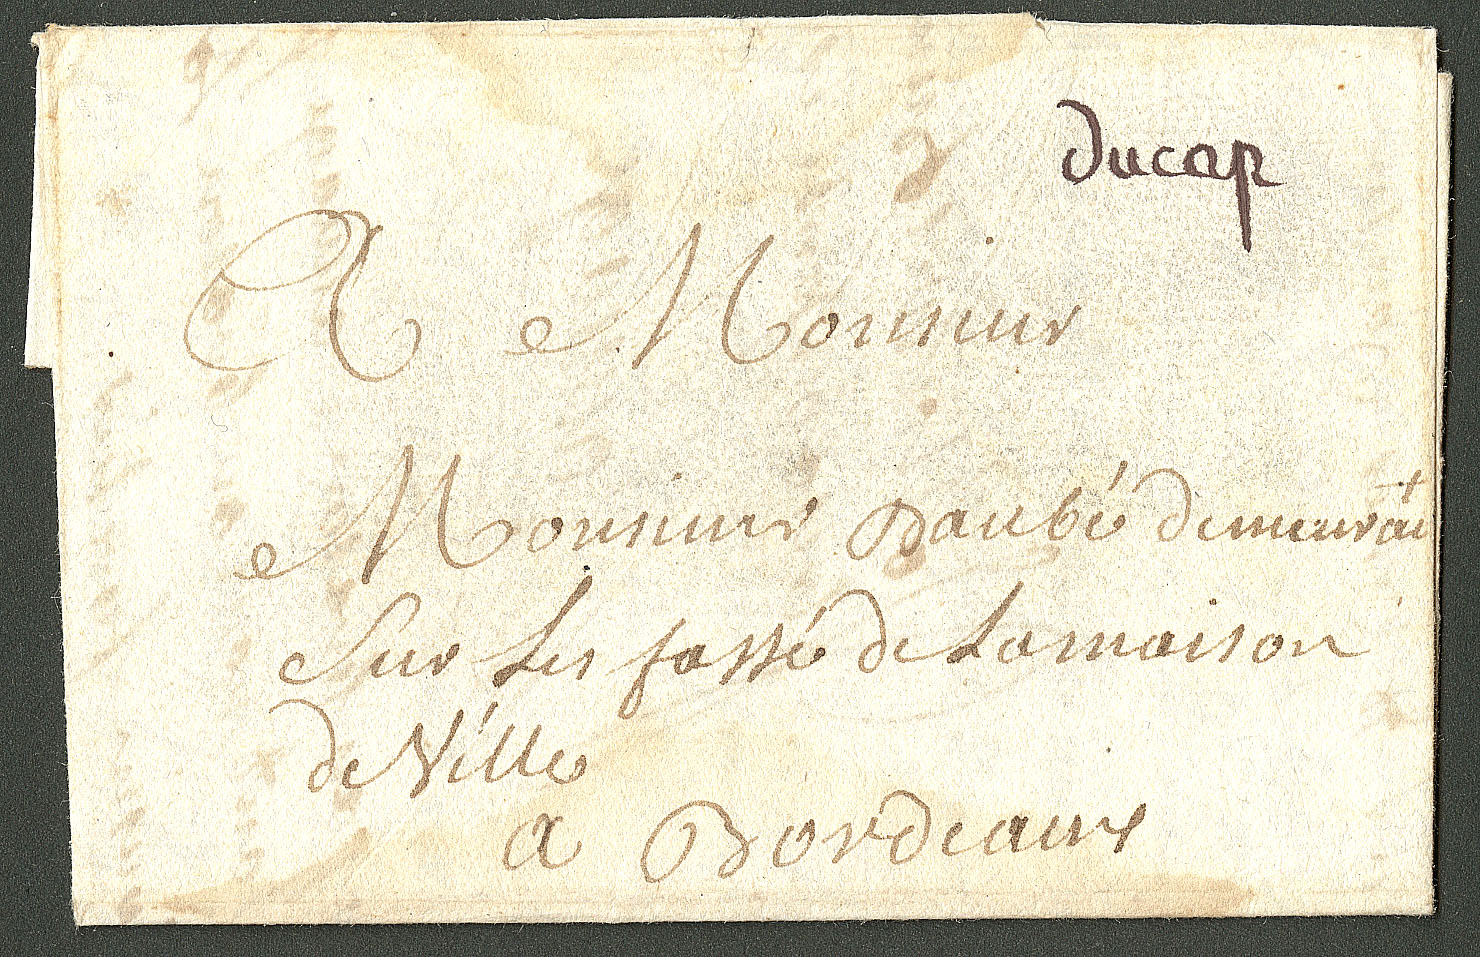 ducap
A Monsieur
Monsieur Daubé demeurant
Sur Les fossé de Lamaison
de Ville
a Bordeaux